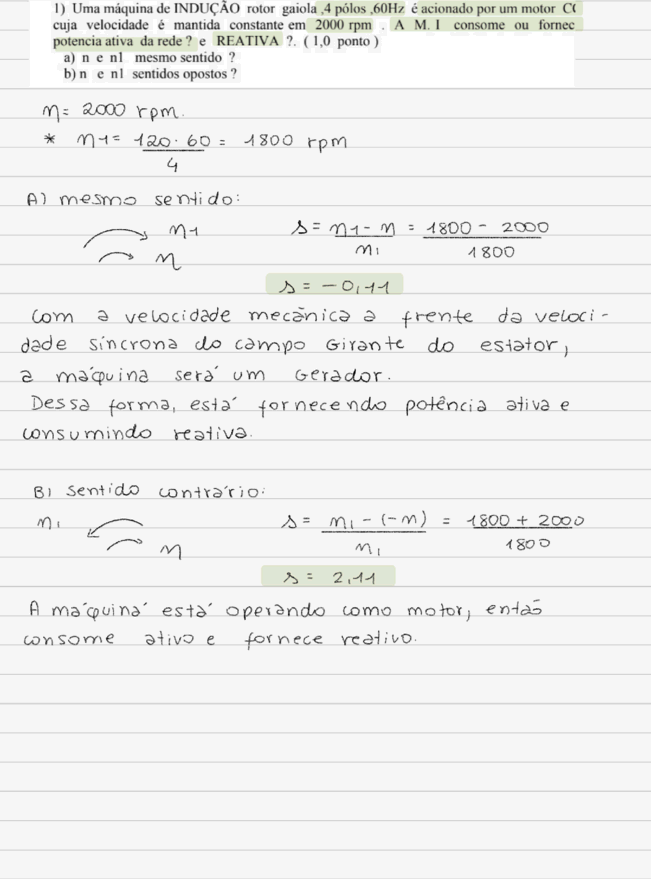 1) Uma máquina de INDUÇÃO rotor gaiola ,4 pólos ,60Hz é acionado por um motor CC
cuja velocidade é mantida constante em 2000 rpm . A M. I consome ou fornec
potencia ativa da rede ? e REATIVA ?. ( 1,0 ponto )
a) n e n1 mesmo sentido ?
b) n e n1 sentidos opostos ?
n = 2000 rpm.
* n1 = 120 · 60 / 4 = 1800 rpm
A) mesmo sentido:
n1
n
s = n1 - n / n1 = 1800 - 2000 / 1800
s = -0,11
Com a velocidade mecânica a frente da veloci-
dade síncrona do campo Girante do estator,
a máquina será um Gerador.
Dessa forma, está fornecendo potência ativa e
consumindo reativa.
B) sentido contrário:
n1
n
s = n1 - (-n) / n1 = 1800 + 2000 / 1800
s = 2,11
A máquina está operando como motor, então
consome ativo e fornece reativo.